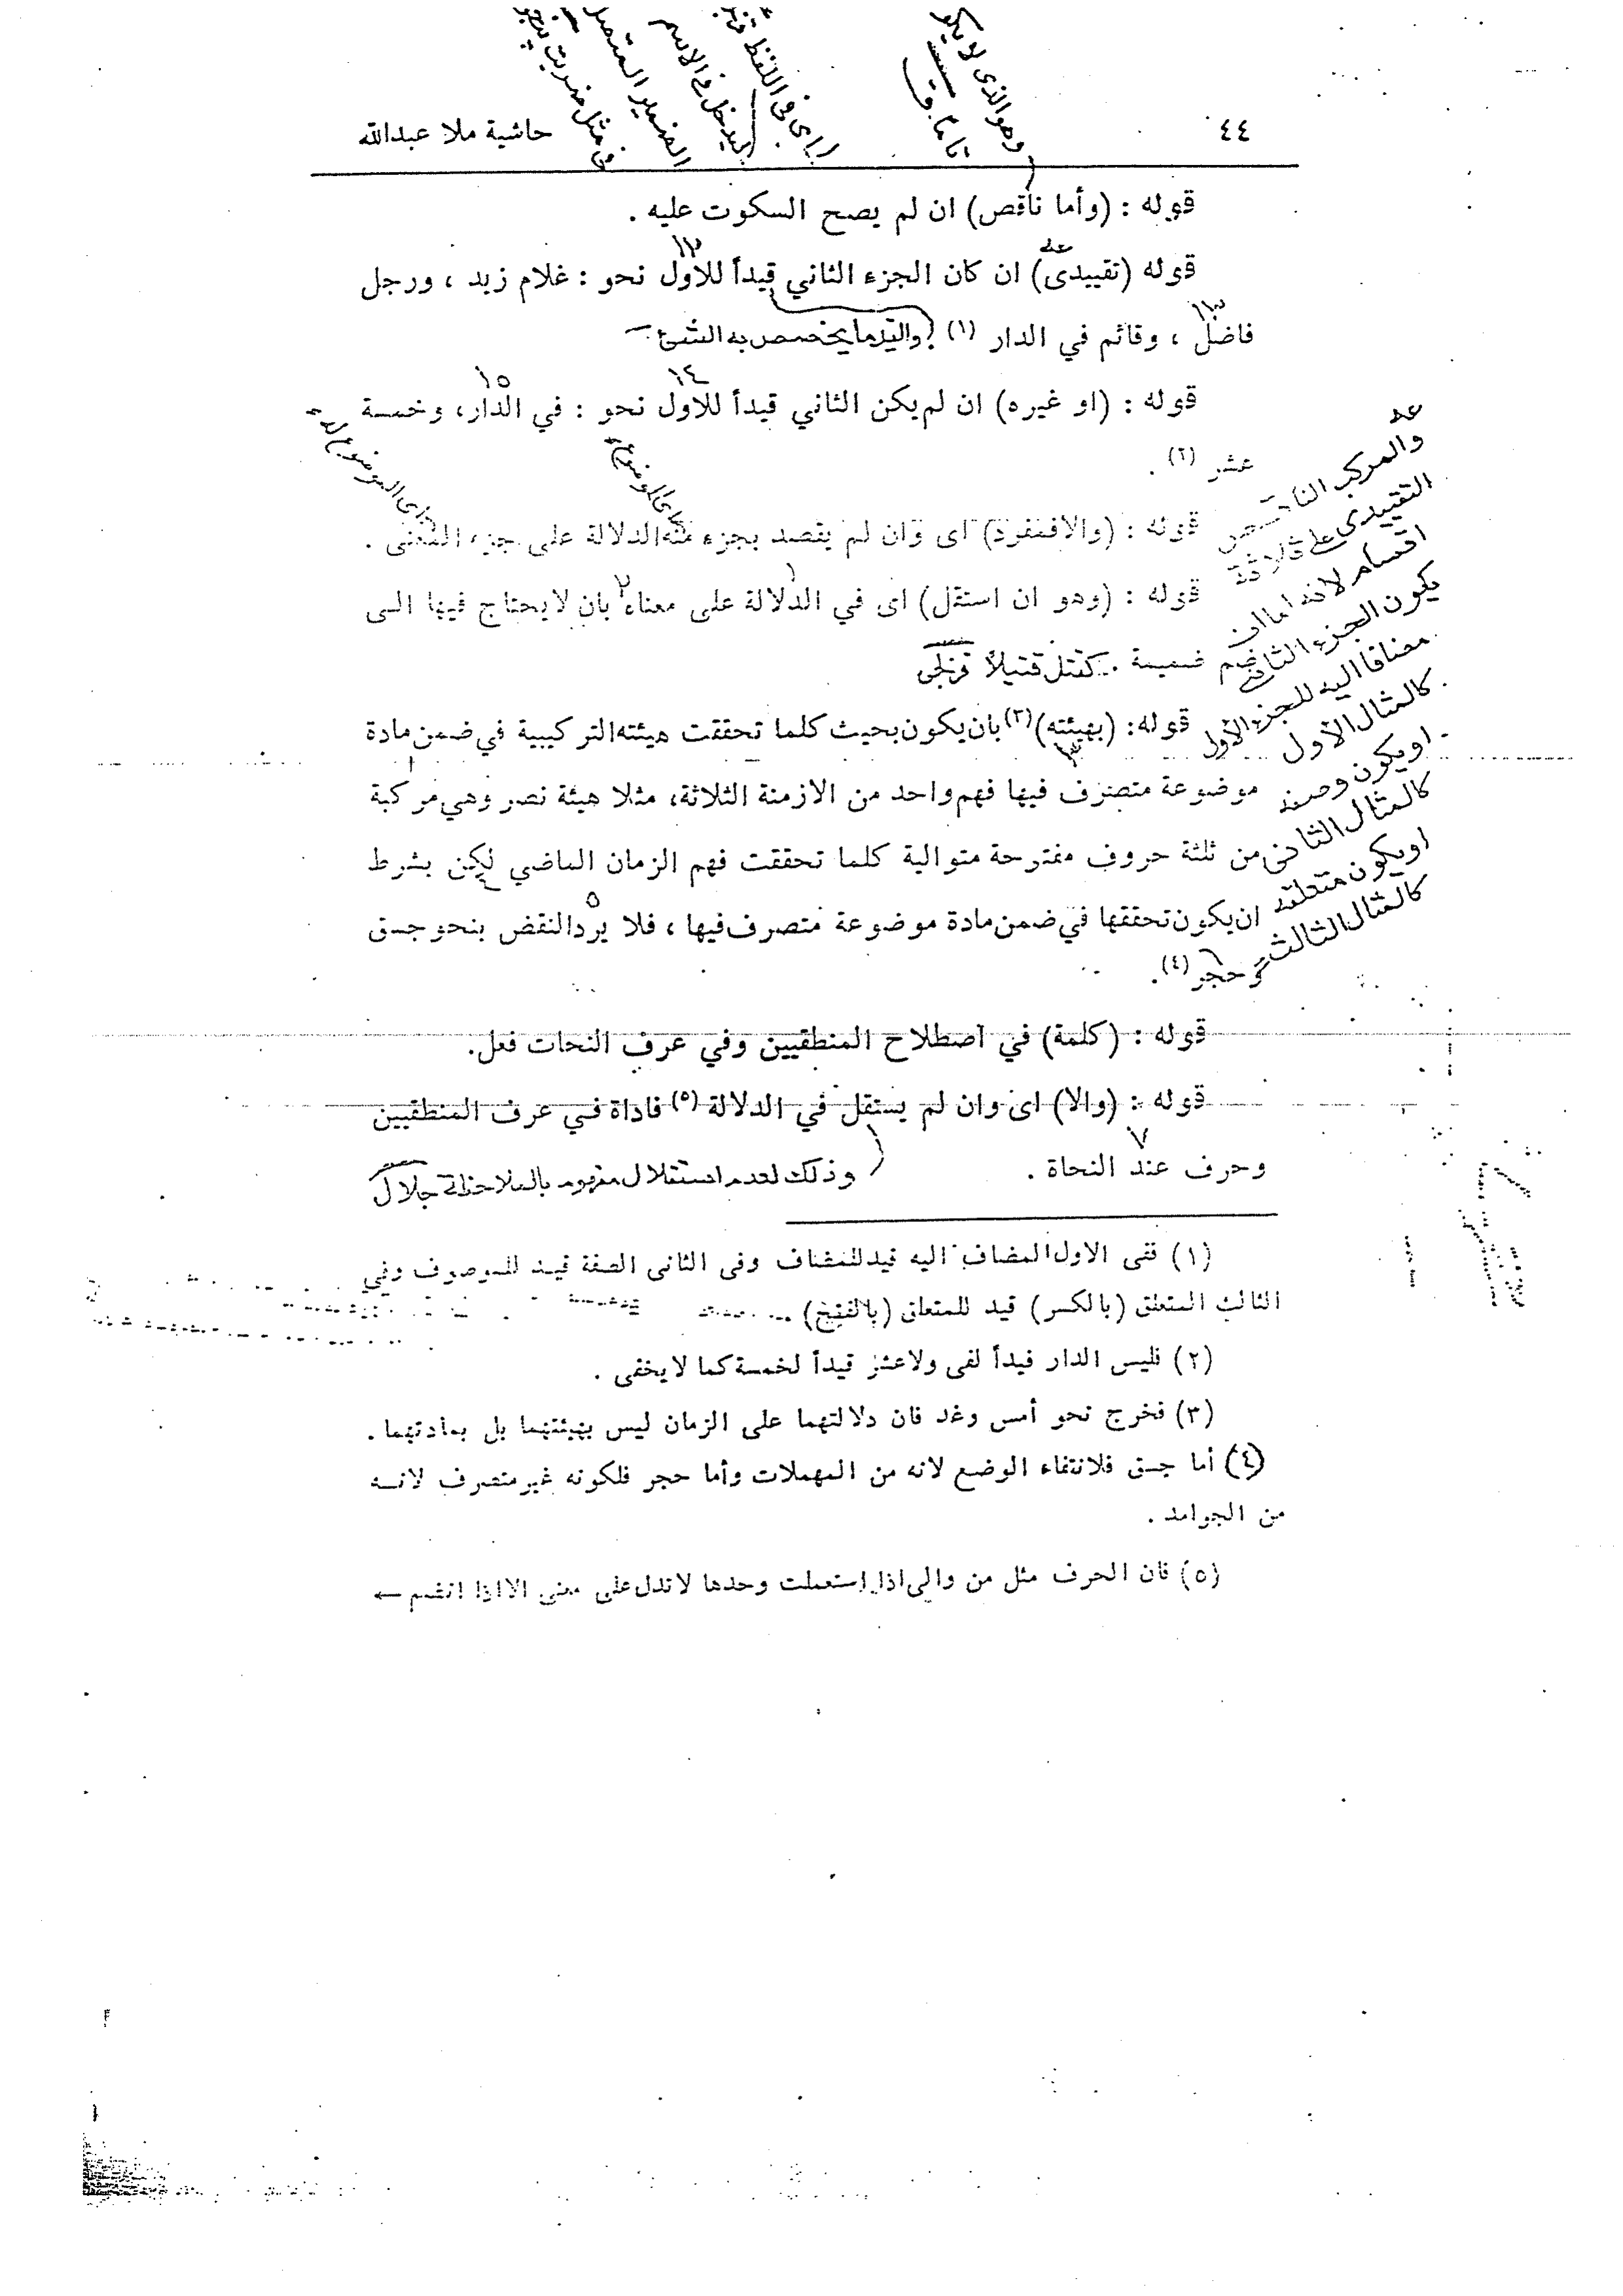 ٤٤
حاشية ملا عبدالله
وهو الذى لا يكو
قوله : (وأما ناقص) ان لم يصح السكوت عليه .
قوله (تقييدى) ان كان الجزء الثاني قيداً للاول نحو : غلام زيد ، ورجل
فاضل ، وقائم في الدار (١) والقيد ما يخصص به الشئ
قوله : (او غيره) ان لم يكن الثاني قيداً للاول نحو : في الدار، وخمسة
عشر (٢) .
قوله : (والافمفرد) اى وان لم يقصد بجزء منه الدلالة على جزء المعنى .
قوله : (وهو ان استقل) اى في الدلالة على معناه بان لا يحتاج فيها الى
ضم ضميمة . كقتل قتيلاً
قوله: (بهيئته) (٣) بان يكون بحيث كلما تحققت هيئته التركيبية في ضمن مادة
موضوعة متصرف فيها فهم واحد من الازمنة الثلاثة، مثلا هيئة نصر وهي مركبة
من ثلثة حروف مفتوحة متوالية كلما تحققت فهم الزمان الماضي لكن بشرط
ان يكون تحققها في ضمن مادة موضوعة متصرف فيها ، فلا يرد النقض بنحو جسق
و حجر (٤) .
والمركب الناقص
التقييدى على ثلاثة
اقسام لانه اما ان
يكون الجزء الثانى
مضافا اليه للجزء الاول
كالمثال الاول
او يكون وصفه
كالمثال الثانى
او يكون متعلقه
كالمثال الثالث
قوله : (كلمة) في اصطلاح المنطقيين وفي عرف النحات فعل.
قوله : (والا) اى وان لم يستقل في الدلالة (٥) فاداة في عرف المنطقيين
وحرف عند النحاة . وذلك لعدم استقلال مفهومه بالملاحظة جلال
(١) ففى الاول المضاف اليه قيد للمضاف وفى الثانى الصفة قيد للموصوف وفي
الثالث المتعلق (بالكسر) قيد للمتعلق (بالفتح)
(٢) فليس الدار قيداً لفى ولا عشر قيداً لخمسة كما لا يخفى .
(٣) فخرج نحو أمس وغد فان دلالتهما على الزمان ليس بهيئتهما بل بمادتهما .
(٤) أما جسق فلانتفاء الوضع لانه من المهملات وأما حجر فلكونه غير متصرف لانه
من الجوامد .
(٥) فان الحرف مثل من والى اذا استعملت وحدها لا تدل على معنى الا اذا انضم ←